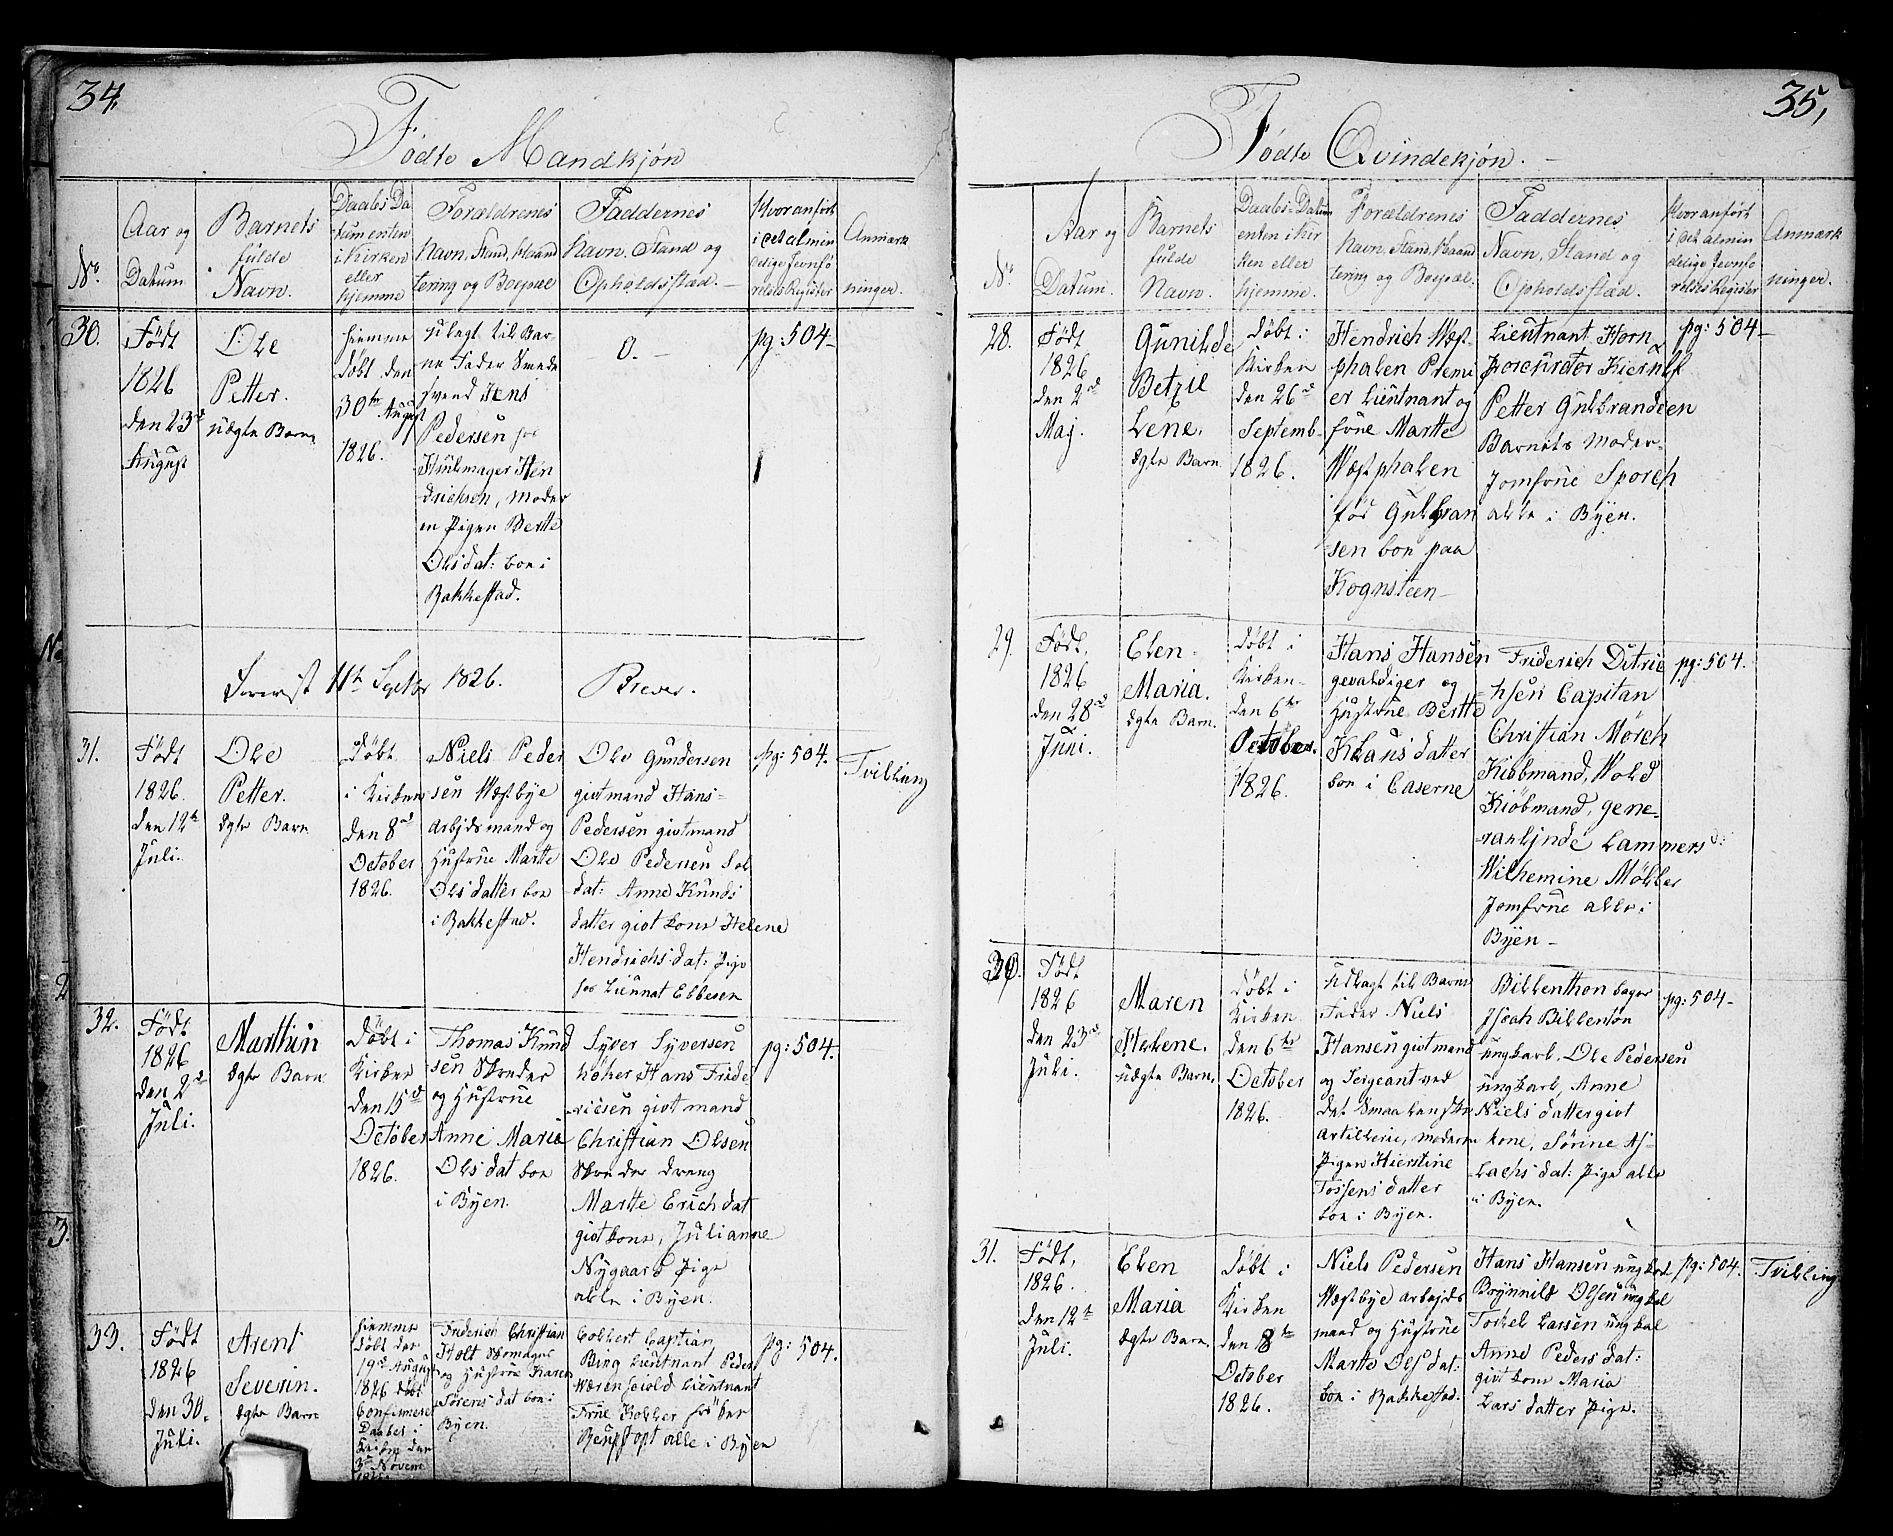 34.
Fødte Mandkjøn
No.
Aar og
Datum
Barnets
fulde
Navn.
Daabs Da
tum enten
i Kirken
eller
hjemme
Forældrenes
Navn, Stand, Haand
tering og Boepæl
Faddernes
Navn, Stand og
Opholdsstæd.
Hvor anført
i det almin
delige Jevnfø
relses Register
Anmærk
ninger.
30.
Født
1826
den 23d
August
Ole
Petter.
uægte Barn
hiemme
døbt den
30te August
1826.
ulagt til Bar
ne Fader Smede
svend Jens
Pedersen hos
Hiulmager Hen
drichsen, moder
en Pigen Berthe
Olsdat: boe i
Bakkestad.
0.
pg: 504
11te Septbr 1826. Brever.
31.
Født
1826.
den 12te
Juli.
Ole
Petter.
ægte Barn
Døbt
i Kirken
den 8d
October
1826.
Niels Peder
sen Wæstbye
Arbejdsmand og
Hustrue Marthe
Olsdatter boe
i Bakkestad.
Ole Gundersen
givtmand Hans
Pedersen givtmand
Ole Pedersen Sol
dat: Anne Knuds
datter givt kone Helene
Hendrichsdat: Pige
hos Lieunat Ebbesen
pg: 504.
Tvilling
32.
Født
1826
den 2d
Juli.
Marthin
ægte Barn
Døbt i
Kirken
den 15d
October
1826.
Thomas Knud
sen Skreder
og Hustrue
Anne Maria
Olsdat boe
i Byen.
Syver Syversen
høker Hans Fride
richsen givtmand
Christian Olsen
Skreder dreng
Marthe Erichdat
givt kone, Julianne
Nygaard Pige
alle i Byen.
pg: 504.
33.
Født
1826
den 30.
Juli.
Arent
Severin.
ægte Barn
hiemme
døbt den
19d August
1826 døbt
Confirmeret
Daaben i
Kirken den
3d Novem
Friderich Christian
Holt Skomager
og Hustrue Karen
Sørensdat boe i
Byen.
Colbert Captian
Bing Lieutnant Peder
Wærenskiold Lieutnant
Frue Kolber
alle i Byen
pg: 504.
35,
Fødte Qvindekjøn.
No.
Aar og
Datum.
Barnets
fulde
Navn.
Daabs-Datum
enten i Kir
ken eller
hjemme.
Forældrenes
Navn, Stand, Haand
tering og Boepæl.
Faddernes
Navn, Stand og
Opholdsstæd.
Hvor anført
i det almin
delige Jevnfø
relses Register
Anmærk
ninger.
28.
Født
1826
den 2d
Maj.
Gunilde
Betzie
Lene.
ægte Barn
døbt i
Kirken
den 26d
Septemb
1826.
Hendrich Wæst
phalen Premi
er Lieutnant og
frue Marthe
Wæstphalen
fød Gulbran
sen boe paa
Kognsteen
Lieutnant Horn
Petter Gulbrandsen
Barnets Moder
Jomfrue Sporch
alle i Byen.
pg: 504
29.
Født,
1826
den 28d
Juni.
Elen
Maria.
ægte Barn.
døbt i
Kirken
den 6te
October.
1826.
Hans Hansen
gevaldiger og
Hustrue Berthe
Klausdatter
boe i Caserne
Friderich Ditric
hsen Capitan
Christian Mørch
Kiøbmand, Wold
Kiøbmand, gene
Lammers
Wilhemine Møller
Jomfrue alle i
Byen
pg: 504.
30.
Født
1826
den 23d
Juli.
Maren
Helene.
uægte Barn.
Døbt i
Kirken
den 6te
October
1826.
udlagt til Barns
Fader Niels
Hansen givtmand
og Sergeant ved
det Smaalenske
Artillerie, moderen
Pigen Hierstine
Tossensdatter
boe i Byen.
Billenthon bager
Isach Billenton
ungkarl, Ole Pedersen
ungkarl, Anne
Nielsdatter givt
kone, Sørine As
lachsdat: Pige alle
i Byen.
pg: 504
31.
Født,
1826.
den 12te
Juli.
Elen
Maria
ægte Barn.
døbt i
Kirken
den 8te
October
1826.
Niels Pedersen
Wæstbye arbejds
mand og Hustrue
Marthe Olsdat:
boe i Bakkestad.
Hans Hansen ungkarl
Brynnild Olsen ungkal
Torkel Larsen ungkal
Anne Pedersdat:
givt kone Maria
Larsdatter Pige.
pg: 504.
Tvilling